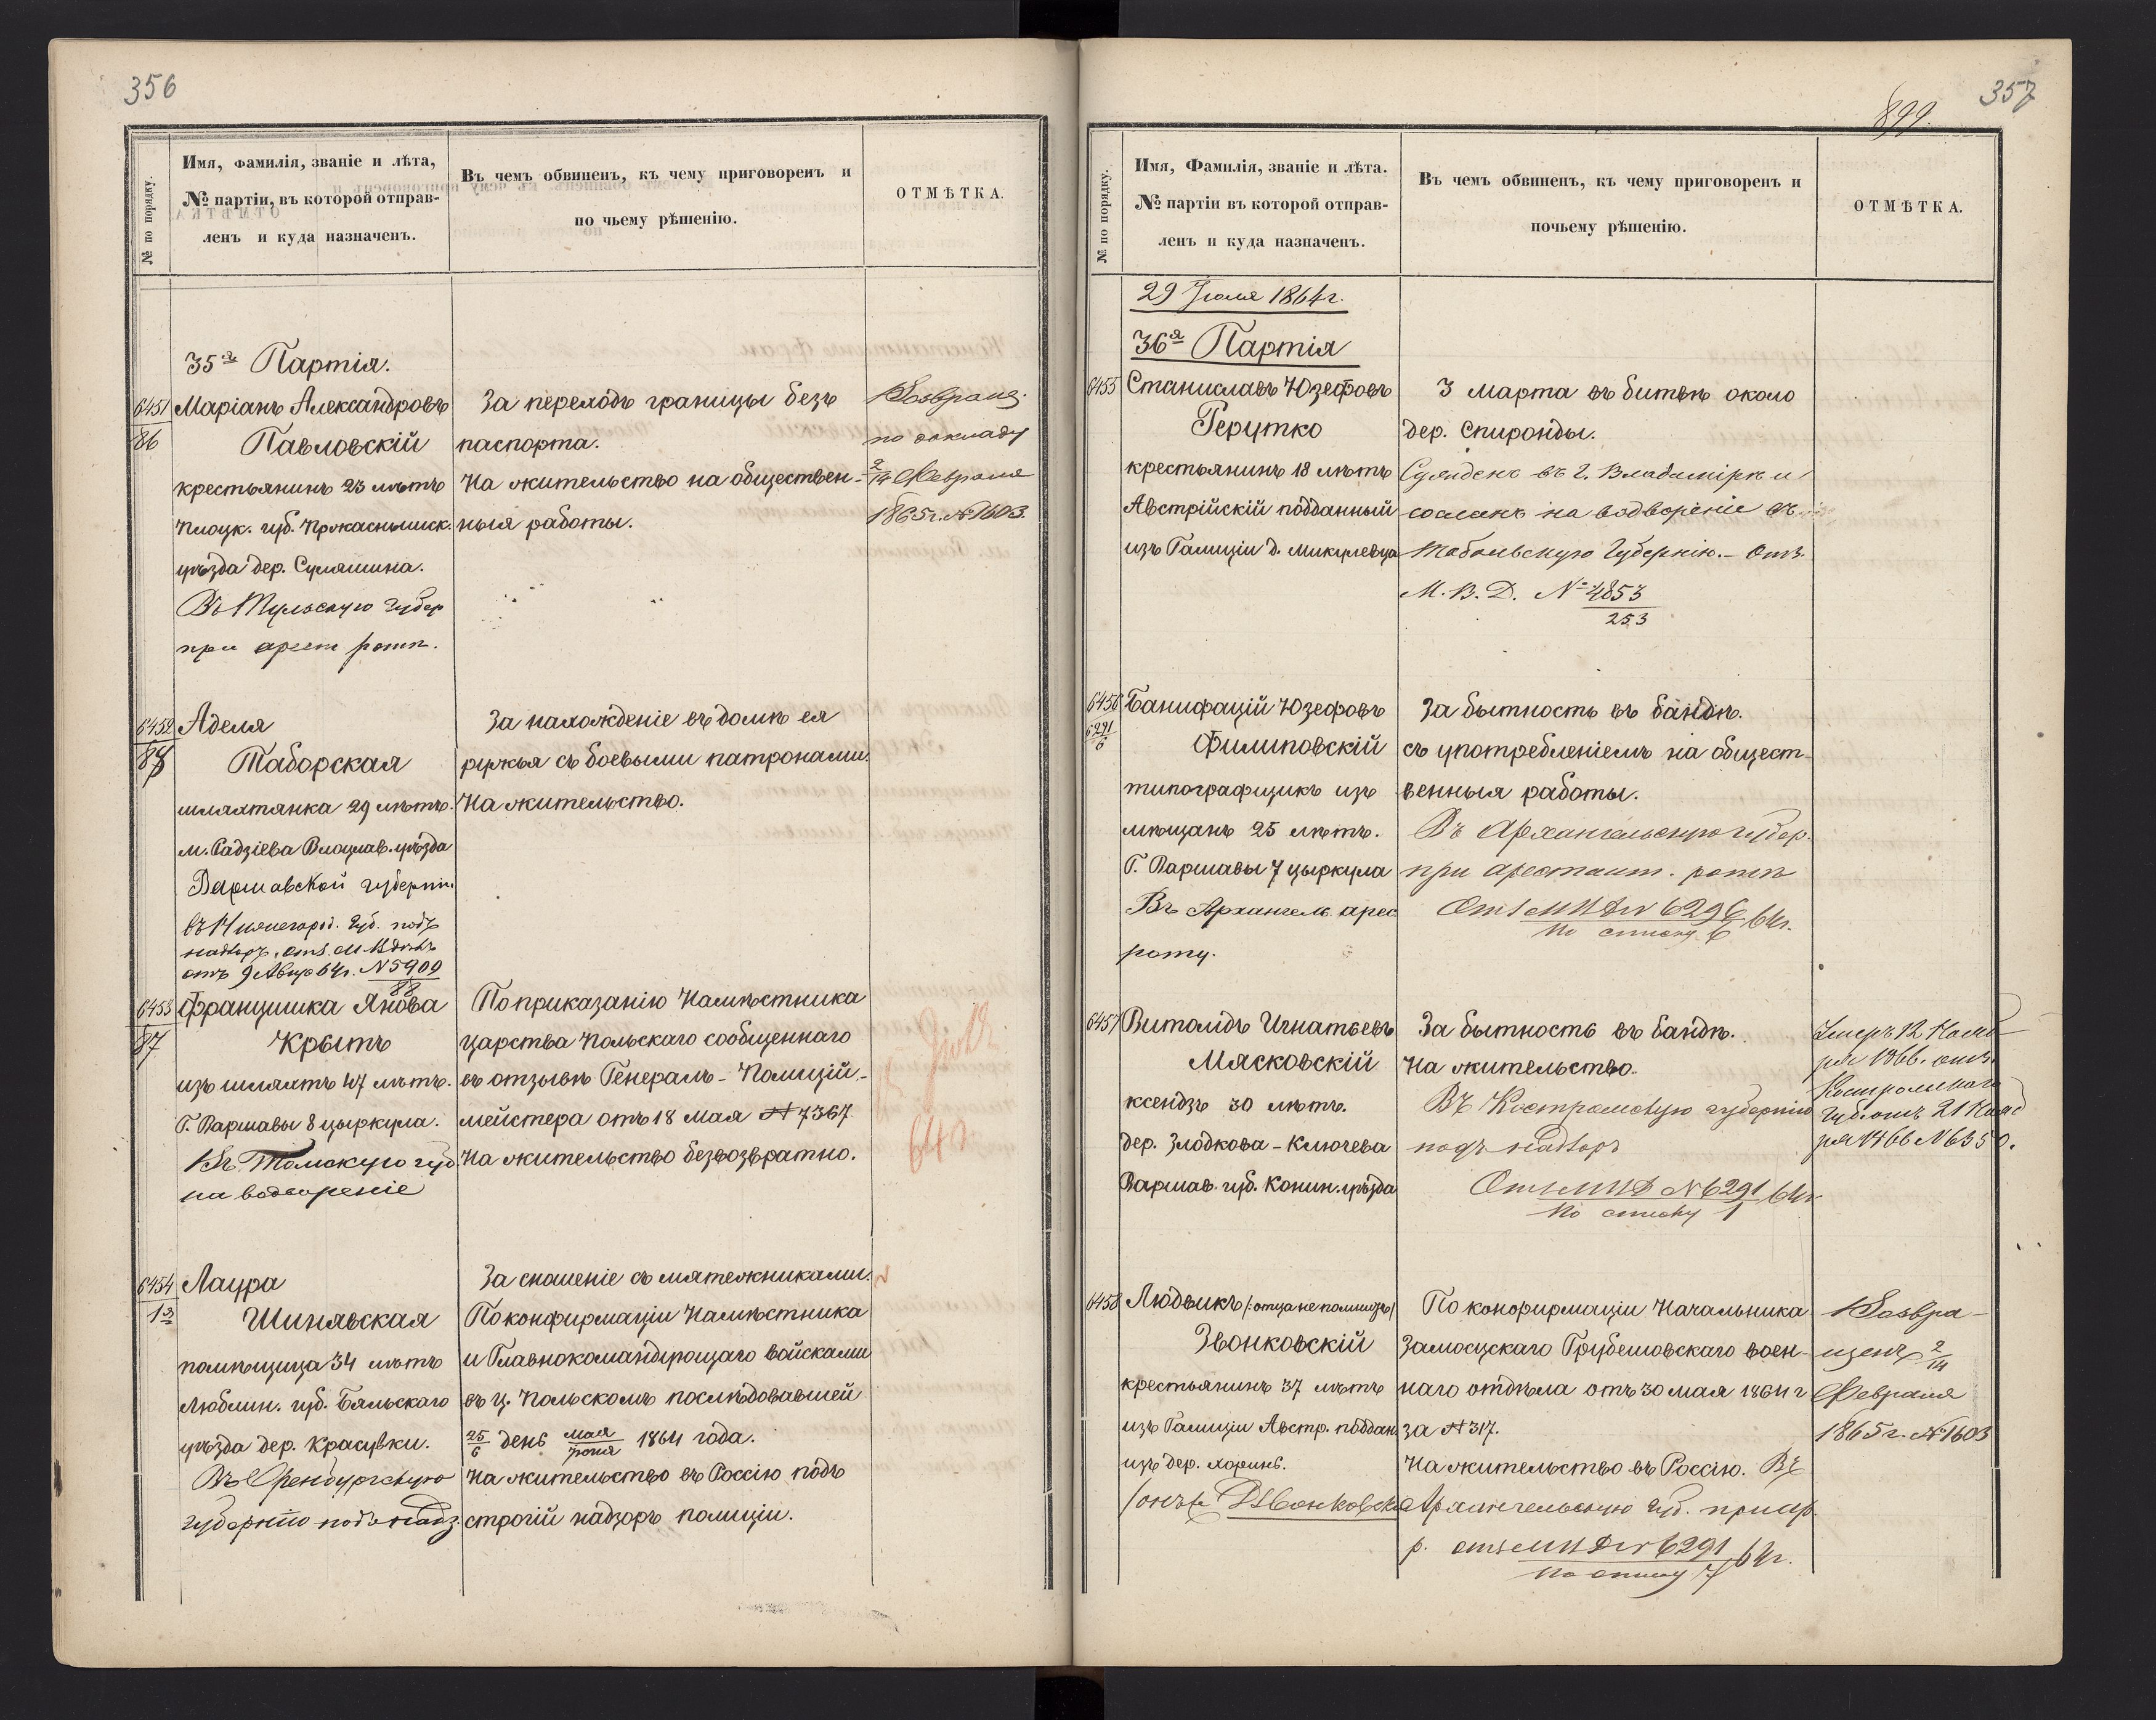 356
№ по порядку.
Имя, фамилія, званіе и лѣта,
№ партіи, въ которой отправ-
ленъ и куда назначенъ.
Въ чемъ обвиненъ, къ чему приговоренъ и
по чьему рѣшенію.
ОТМѢТКА.
35я Партія.
6451
86
Маріанъ Александровъ
Павловскій
крестьянинъ 23 лѣтъ
Плоцк. губ. Пржаснышск.
уѣзда дер. Суляшина.
Въ Тульскую губер
при арест ротѣ.
За переходъ границы безъ
паспорта.
На жительство на обществен-
ныя работы.
Возвращ.
по докладу
2/14 Февраля
1865 г. № 1603.
6452
88
Аделя
Таборская
шляхтянка 29 лѣтъ.
м. Радзіева Влоцлав. уѣзда
Варшавской губерніи
въ Нижегород. Губ. подъ
надзоръ, отз. М В дѣлъ
отъ 9 Авгус 64 г. № 5909
88
За нахожденіе въ домѣ ея
ружья съ боевыми патронами.
На жительство.
6453
87
Францишка Янова
Крытъ
изъ шляхтъ 47 лѣтъ.
Г. Варшавы 8 цыркула.
Въ Томскую губ
на водвореніе
По приказанію Намѣстника
царства Польскаго сообщеннаго
въ отзывѣ Генералъ-Полицій-
мейстера отъ 18 Мая № 7367
На жительство безвозвратно.
64 г
6454
1
Лаура
Шинявская
помѣщица 34 лѣтъ
Люблин. губ. Бяльскаго
уѣзда дер. Красувки.
Въ Оренбургскую
губернію подъ надз.
За сношеніе съ мятежниками.
По конфирмаціи Намѣстника
и Главнокомандующаго войсками
въ ц. Польскомъ послѣдовавшей
25/6 день мая/іюня 1864 года.
На жительство въ Россію подъ
строгій надзоръ полиціи.
357
899.
№ по порядку.
Имя, Фамилія, званіе и лѣта.
№ партіи въ которой отправ-
ленъ и куда назначенъ.
Въ чемъ обвиненъ, къ чему приговоренъ и
почьему рѣшенію.
ОТМѢТКА.
29 Іюля 1864 г.
36я Партія
6455
Станиславъ Юзефовъ
Герутко
крестьянинъ 18 лѣтъ
Австрійскій подданный
изъ Галиціи д. Микулевца
3 марта въ битвѣ около
дер. Спиронды.
Сужденъ въ г. Владимірѣ и
сосланъ на водвореніе въ
Тобольскую Губернію. – Отз.
М. В. Д. № 4853
253
6456
6291
6
Банифацій Юзефовъ
Филиповскій
типографщикъ изъ
мѣщанъ 25 лѣтъ.
Г. Варшавы 7 цыркула
Въ Архангель арес
роту.
За бытность въ бандѣ.
съ употребленіемъ на общест-
венныя работы.
Въ Архангельскую губер.
при арестант. ротѣ
Отз МВД № 6296 64 г.
по списку 6
6457
Витольдъ Игнатьевъ
Мясковскій
ксендзъ 30 лѣтъ.
дер. Злодкова-Ключева
Варшав. губ. Конин. уѣзда
За бытность въ бандѣ.
На жительство.
Въ Костромскую губернію
подъ надзоръ
Отз МВД № 6291 64 г
по списку 1
Умеръ 12 Нояб
ря 1866. отз.
Костромскаго
Губ. отъ 21 Нояб
ря 1866 № 6350.
6458
Людвикъ /:отца не помнитъ/
Звонковскій
крестьянинъ 37 лѣтъ
изъ Галиціи Австр. поддан.
изъ дер. хоринь.
/онъ же Дзвонковскі
По конфирмаціи Начальника
Замосцскаго Грубешовскаго воен-
наго отдѣла отъ 30 мая 1864 г
за № 317.
На жительство въ Россію. Въ
Архангельскую губ. при ар.
р. отз МВД № 6291 64 г.
по списку 7
Возвра-
щенъ 2/14
Февраля
1865 г. № 1603